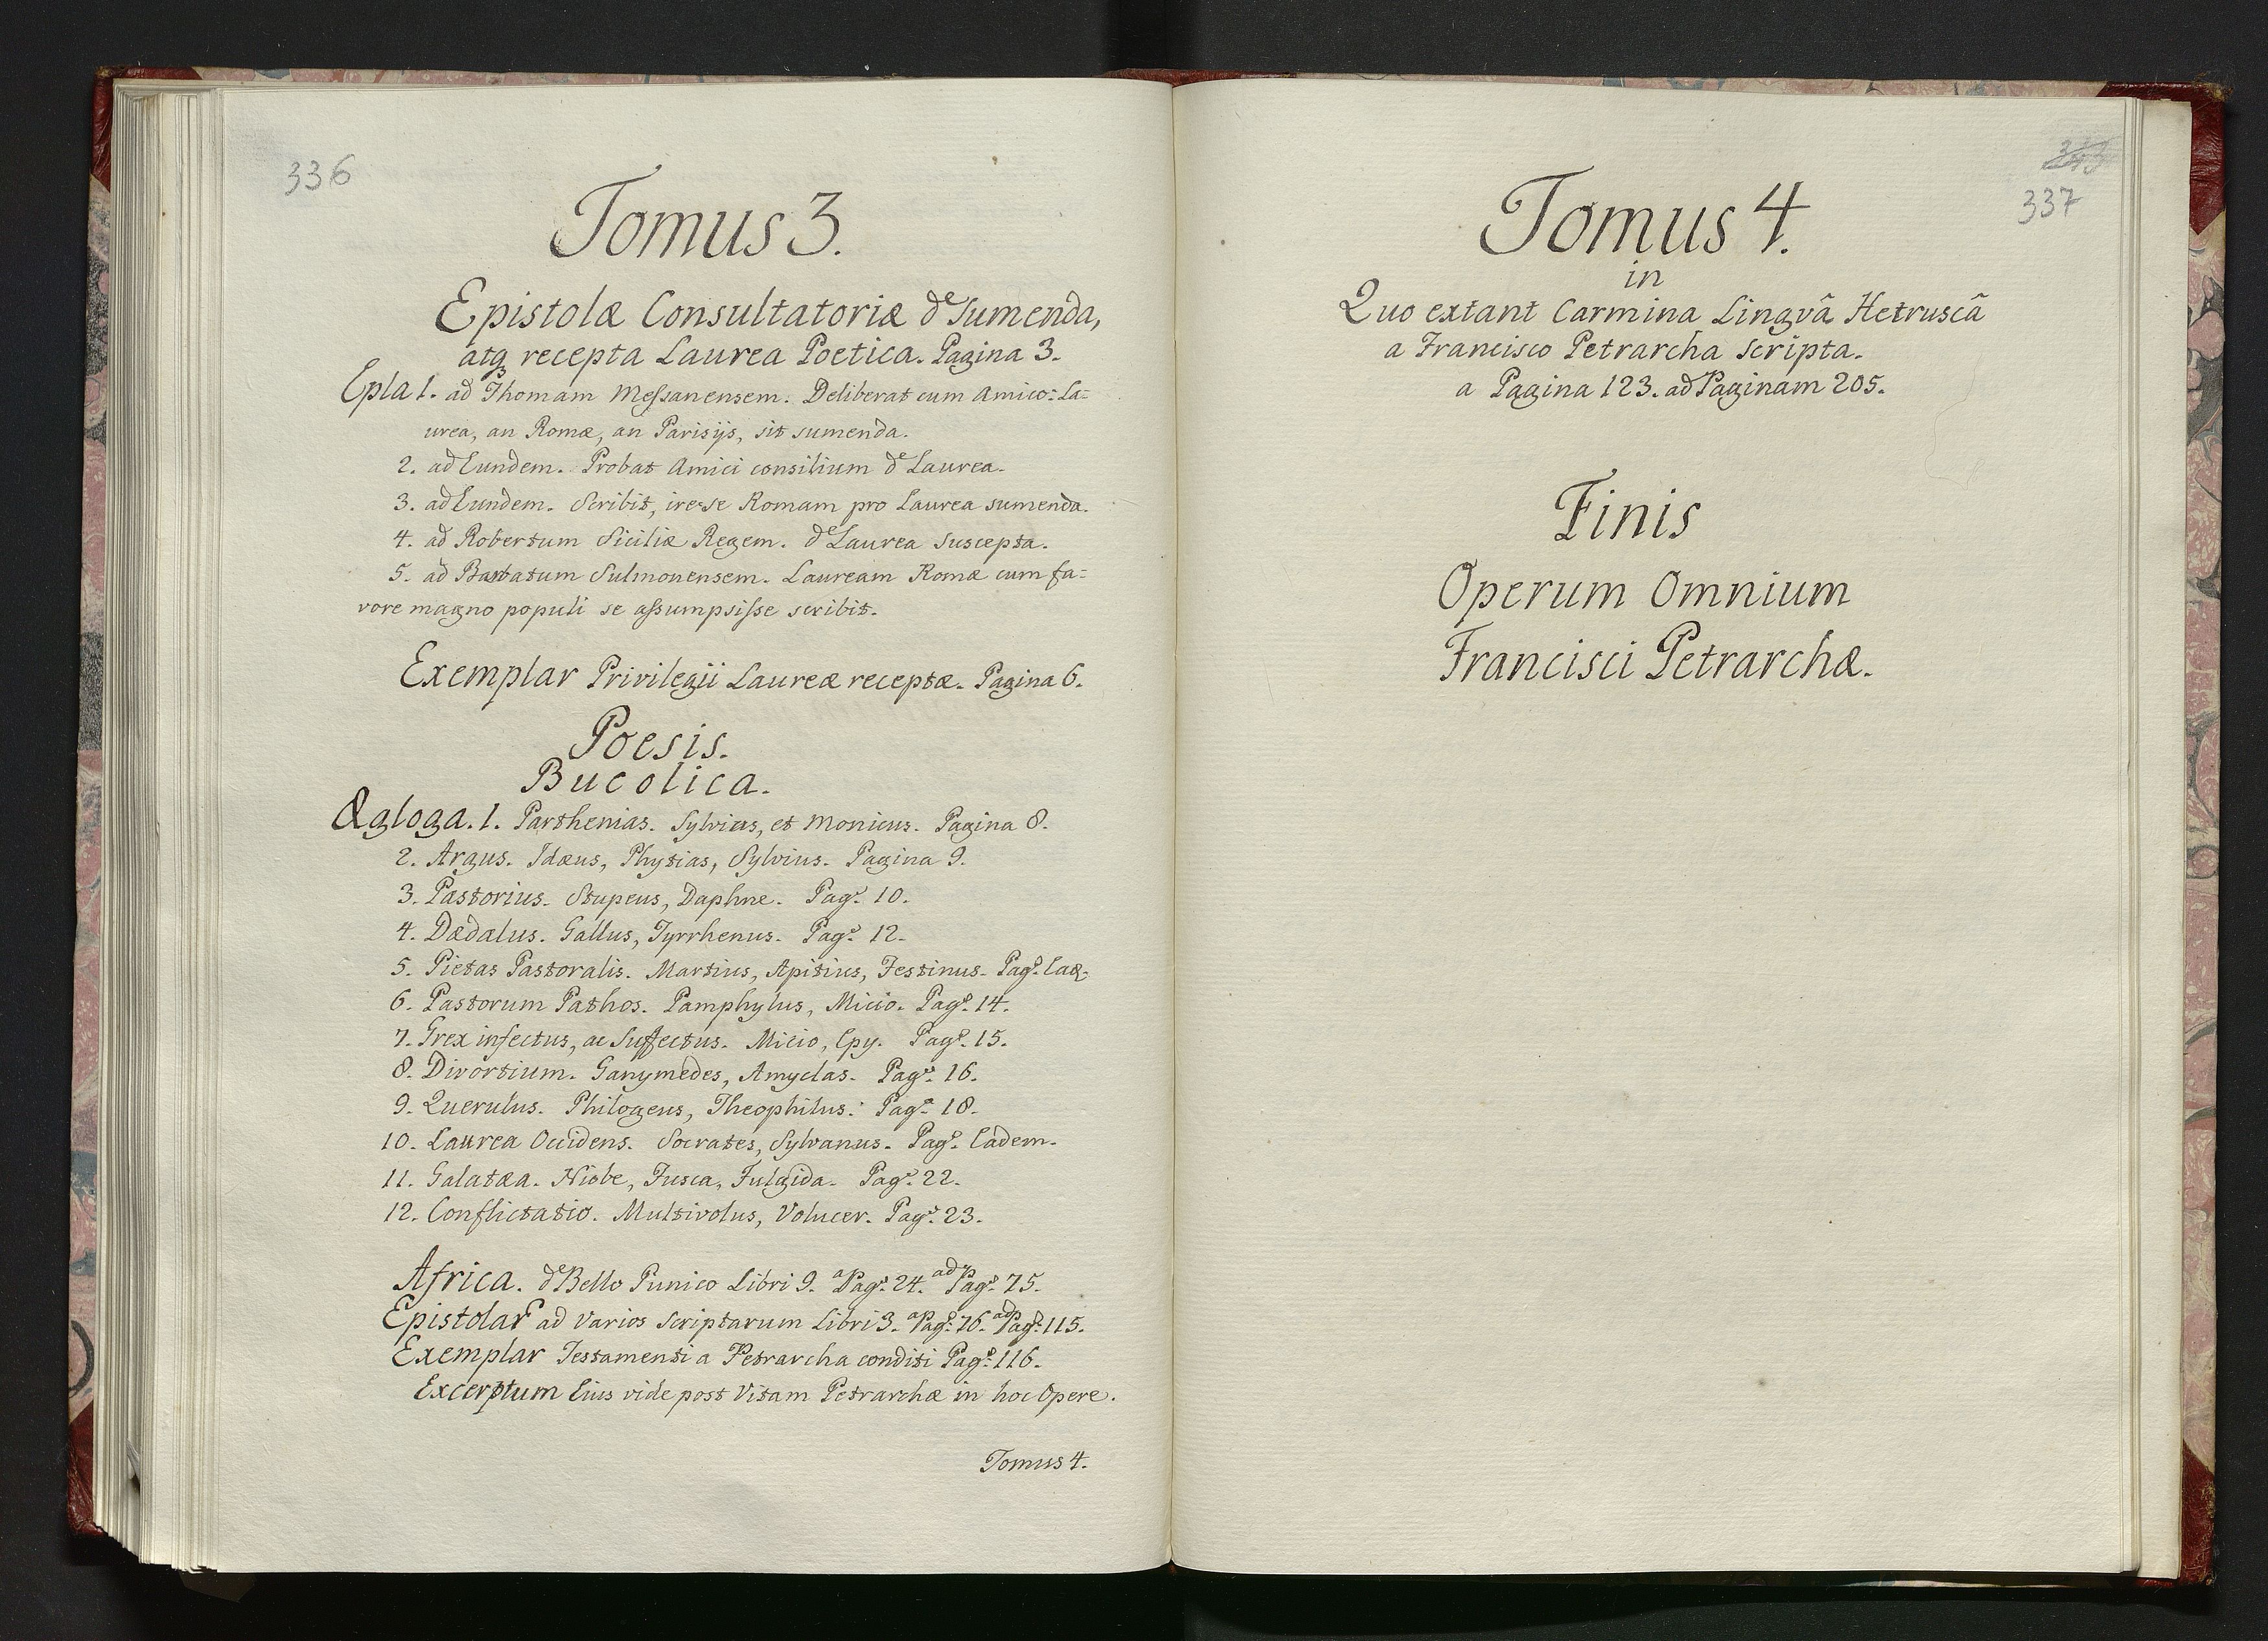 336
Tomus 3.
Epistolæ Consultatoriæ de Sumenda,
atq₃ recepta Laurea Poetica. Pagina 3.
Epla 1. ad Thomam Meſsanensem. Deliberat cum Amico: La=
urea, an Romæ, an Parisijs, sit sumenda.
2. ad Eundem. Probat Amici consilium de Laurea.
3. ad Eundem. Scribit, ire se Romam pro Laurea sumenda.
4. ad Robertum Siciliæ Regem. de Laurea suscepta.
5. ad Barbatum Sulmonensem. Lauream Romæ cum fa=
vore magno populi se aſsumpsiſse scribit.
Exemplar Privilegii Laureæ receptæ. Pagina 6.
Poesis.
Bucolica.
Ægloga. 1. Parthenias. Sylvius, et Monicus. Pagina 8.
2. Argus. Idæus, Phytias, Sylvius. Pagina 9.
3. Pastorius. Stupeus, Daphne. Pagª. 10.
4. Dædalus. Gallus, Tyrrhenus. Pagª. 12.
5. Pietas Pastoralis. Martius, Apitius, Festinus. Pagª. Ead.
6. Pastorum Pathos. Pamphylus, Micio. Pagª. 14.
7. Grex infectus, ac Suffectus. Micio, Epy. Pagª. 15.
8. Divortium. Ganymedes, Amyclas. Pagª. 16.
9. Querulus. Philogeus, Theophilus. Pagª. 18.
10. Laurea Occidens. Socrates, Sylvanus. Pagª. Eâdem.
11. Galatæa. Niobe, Fusca, Fulgida. Pagª. 22.
12. Conflictatio. Multivolus, Volucer. Pagª. 23.
Africa. de Bello Punico Libri 9. a Pagª. 24. ad Pagª. 75.
Epistolar ad Varios Scriptarum Libri 3. a Pagª. 76. ad Pagª. 115.
Exemplar Testamenti a Petrarcha conditi Pagª. 116.
Excerptum Eius vide post Vitam Petrarchæ in hoc Opere.
Tomus 4.
337
Tomus 4.
in
Quo extant Carmina Lingvâ Hetruscâ
a Francisco Petrarcha Scripta.
a Pagina 123. ad Paginam 205.
Finis
Operum Omnium
Francisci Petrarchæ.